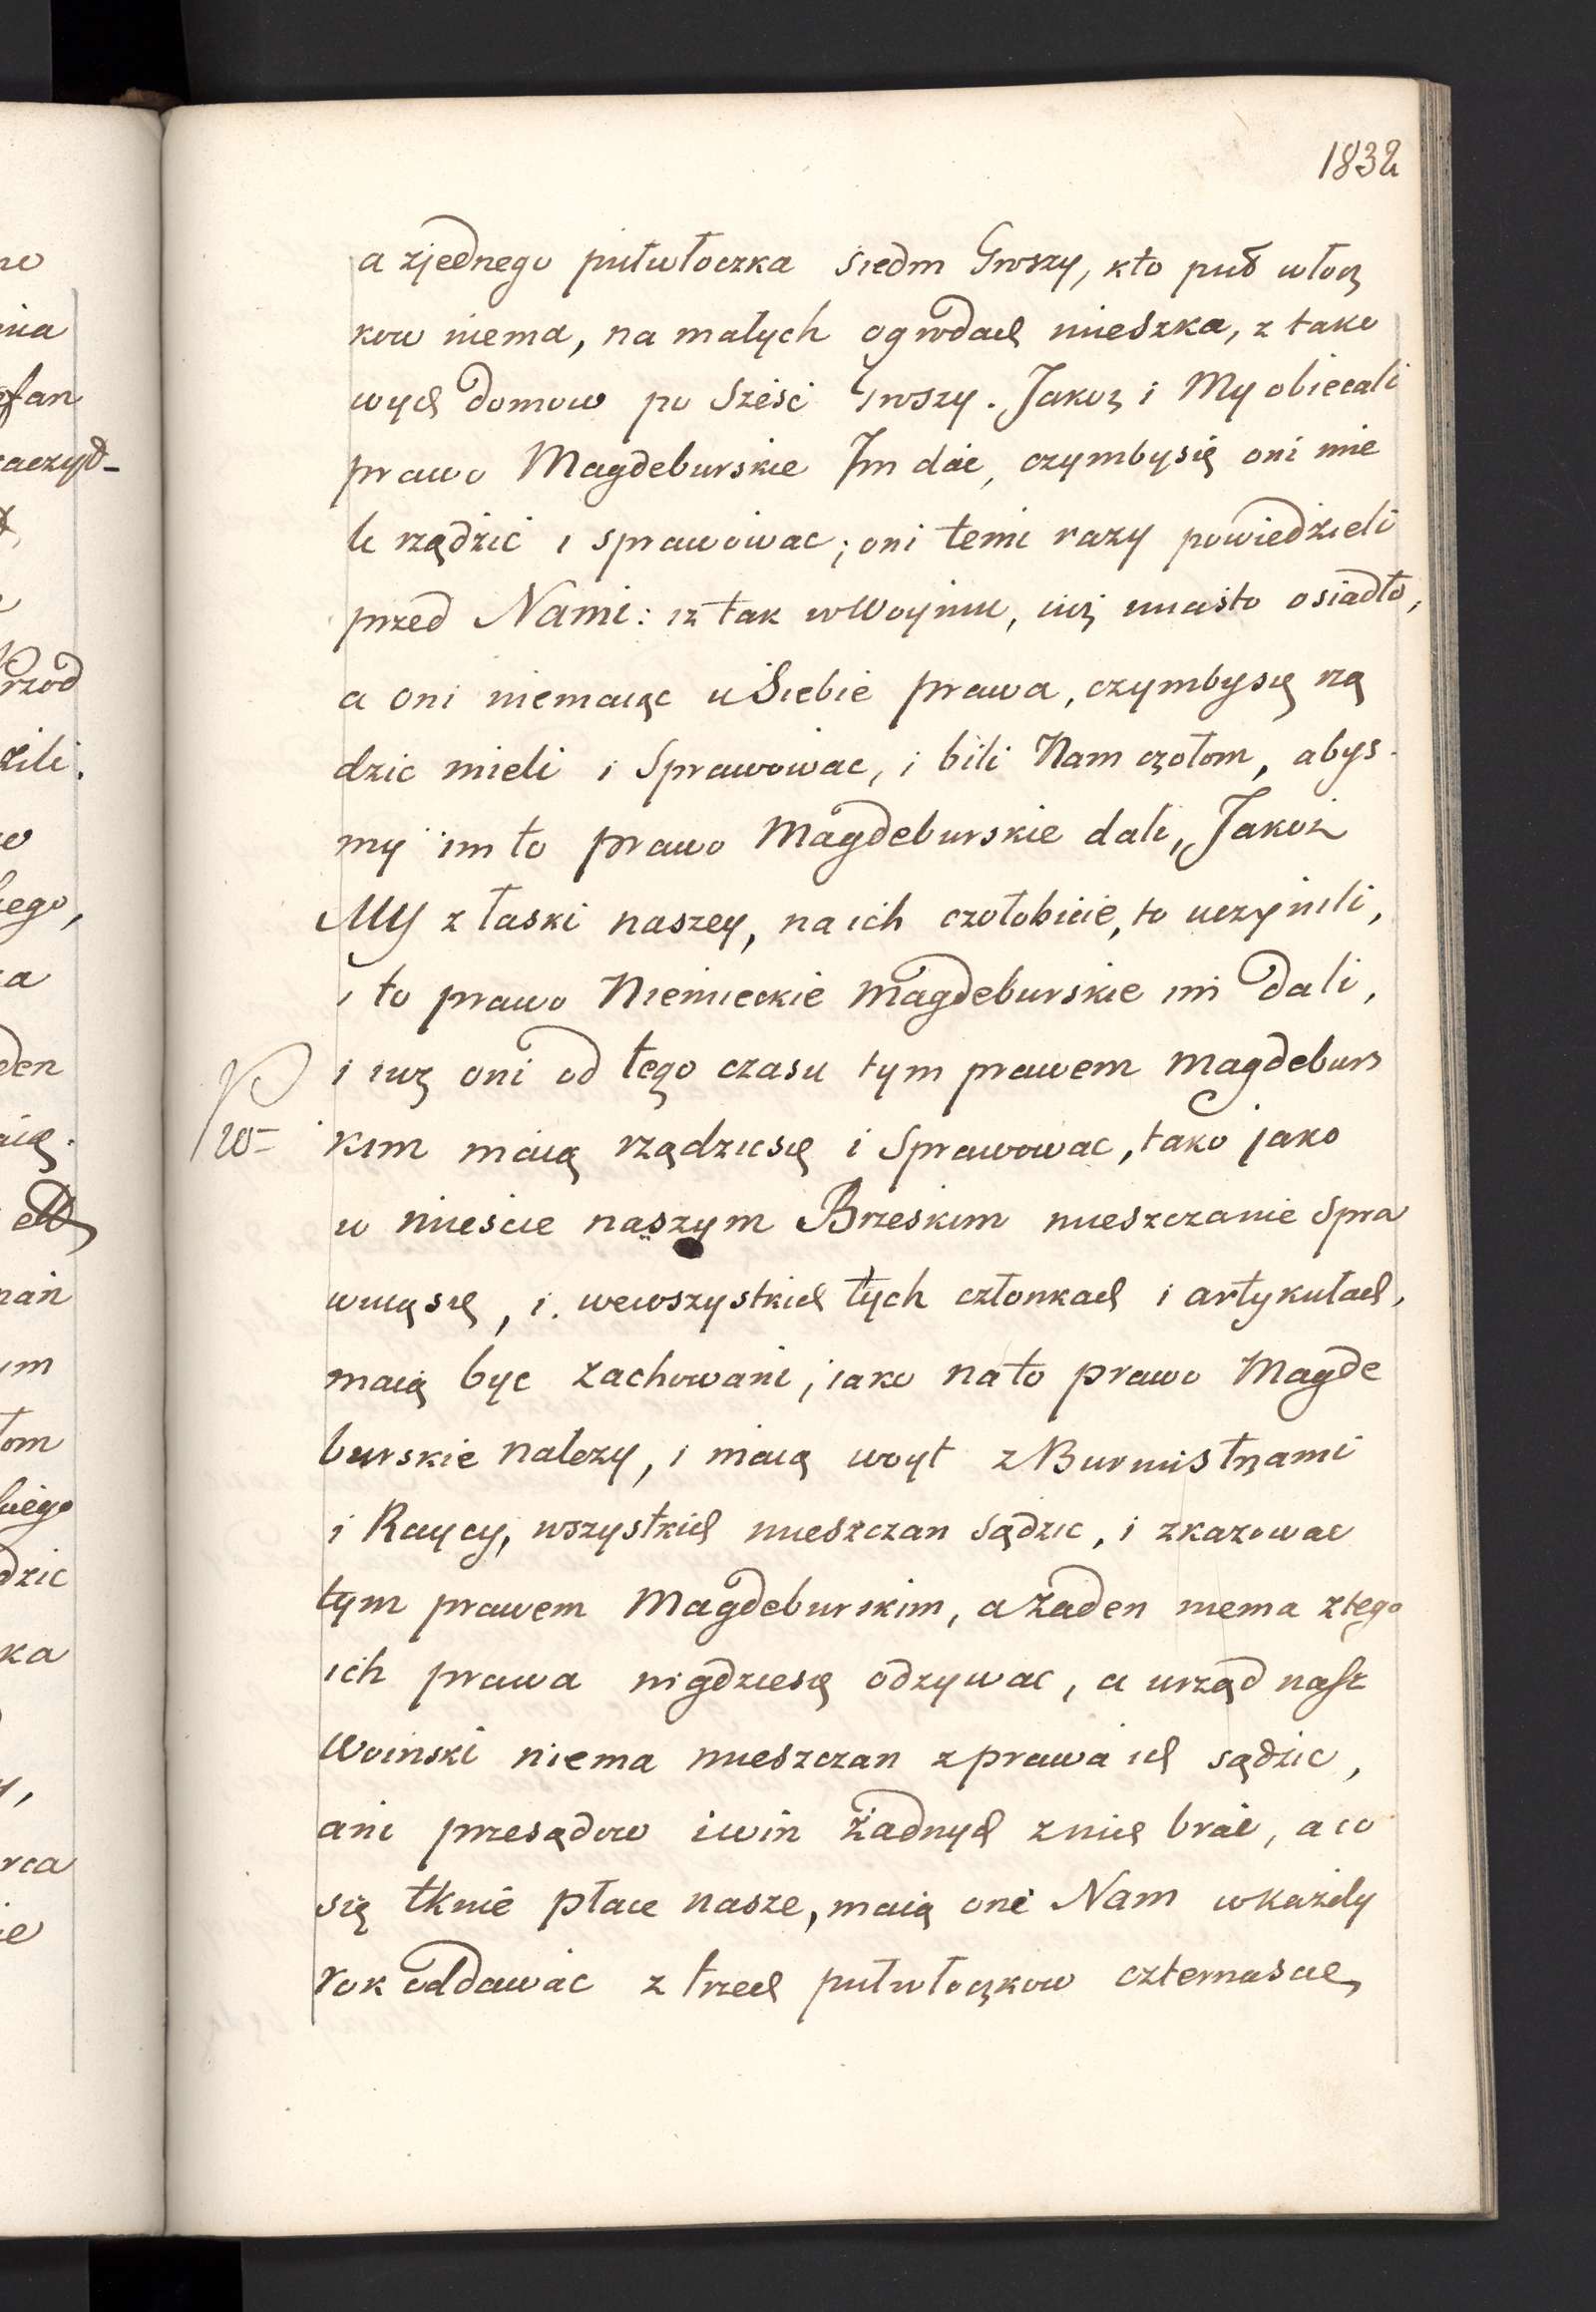 1832
a zjednego pułwłoczka siedm Groszy, kto puł włocz
kow niema, na małych ogrodach mieszka, z tako
wych domow po sześci Groszy. Jakoz i My obiecali
prawo Magdeburskie Im dać, czymbysię oni mie
li rządzić i sprawować; oni temi razy powiedzieli
przed Nami: iz tak wWoyniu, iuż miasto osiadło,
a oni niemaiąc uSiebie prawa, czymbysię rzą
dzic mieli i Sprawować, i bili Nam czołom, abys-
my im to prawo Magdeburskie dali, Jakoż
MY z łaski naszey, na ich czołobicie, to uczynili,
i to prawo Niemieckie Magdeburskie im dali,
i iuż oni od tego czasu tym prawem Magdeburs
kim maią rządzicsię i Sprawowac, tako jako
w mieście naszym Brzeskim mieszczanie spra
wuiąsię, i wewszystkich tych członkach i artykułach,
maią byc zachowani, iako nato prawo Magde
burskie nalezy, i maią woyt zBurmistrzami
i Raycy, wszystkich mieszczan sądzic, i zkazowac
tym prawem Magdeburskim, aŻaden niema ztego
ich prawa nigdziesię odzywac, a urząd nasz
Woinski niema mieszczan zprawa ich sądzic,
ani przesądow iwin żadnych znich brać, aco
się tknie płace nasze, maią oni Nam wkażdy
rok oddawać z trzech pułwłoczkow czternascie